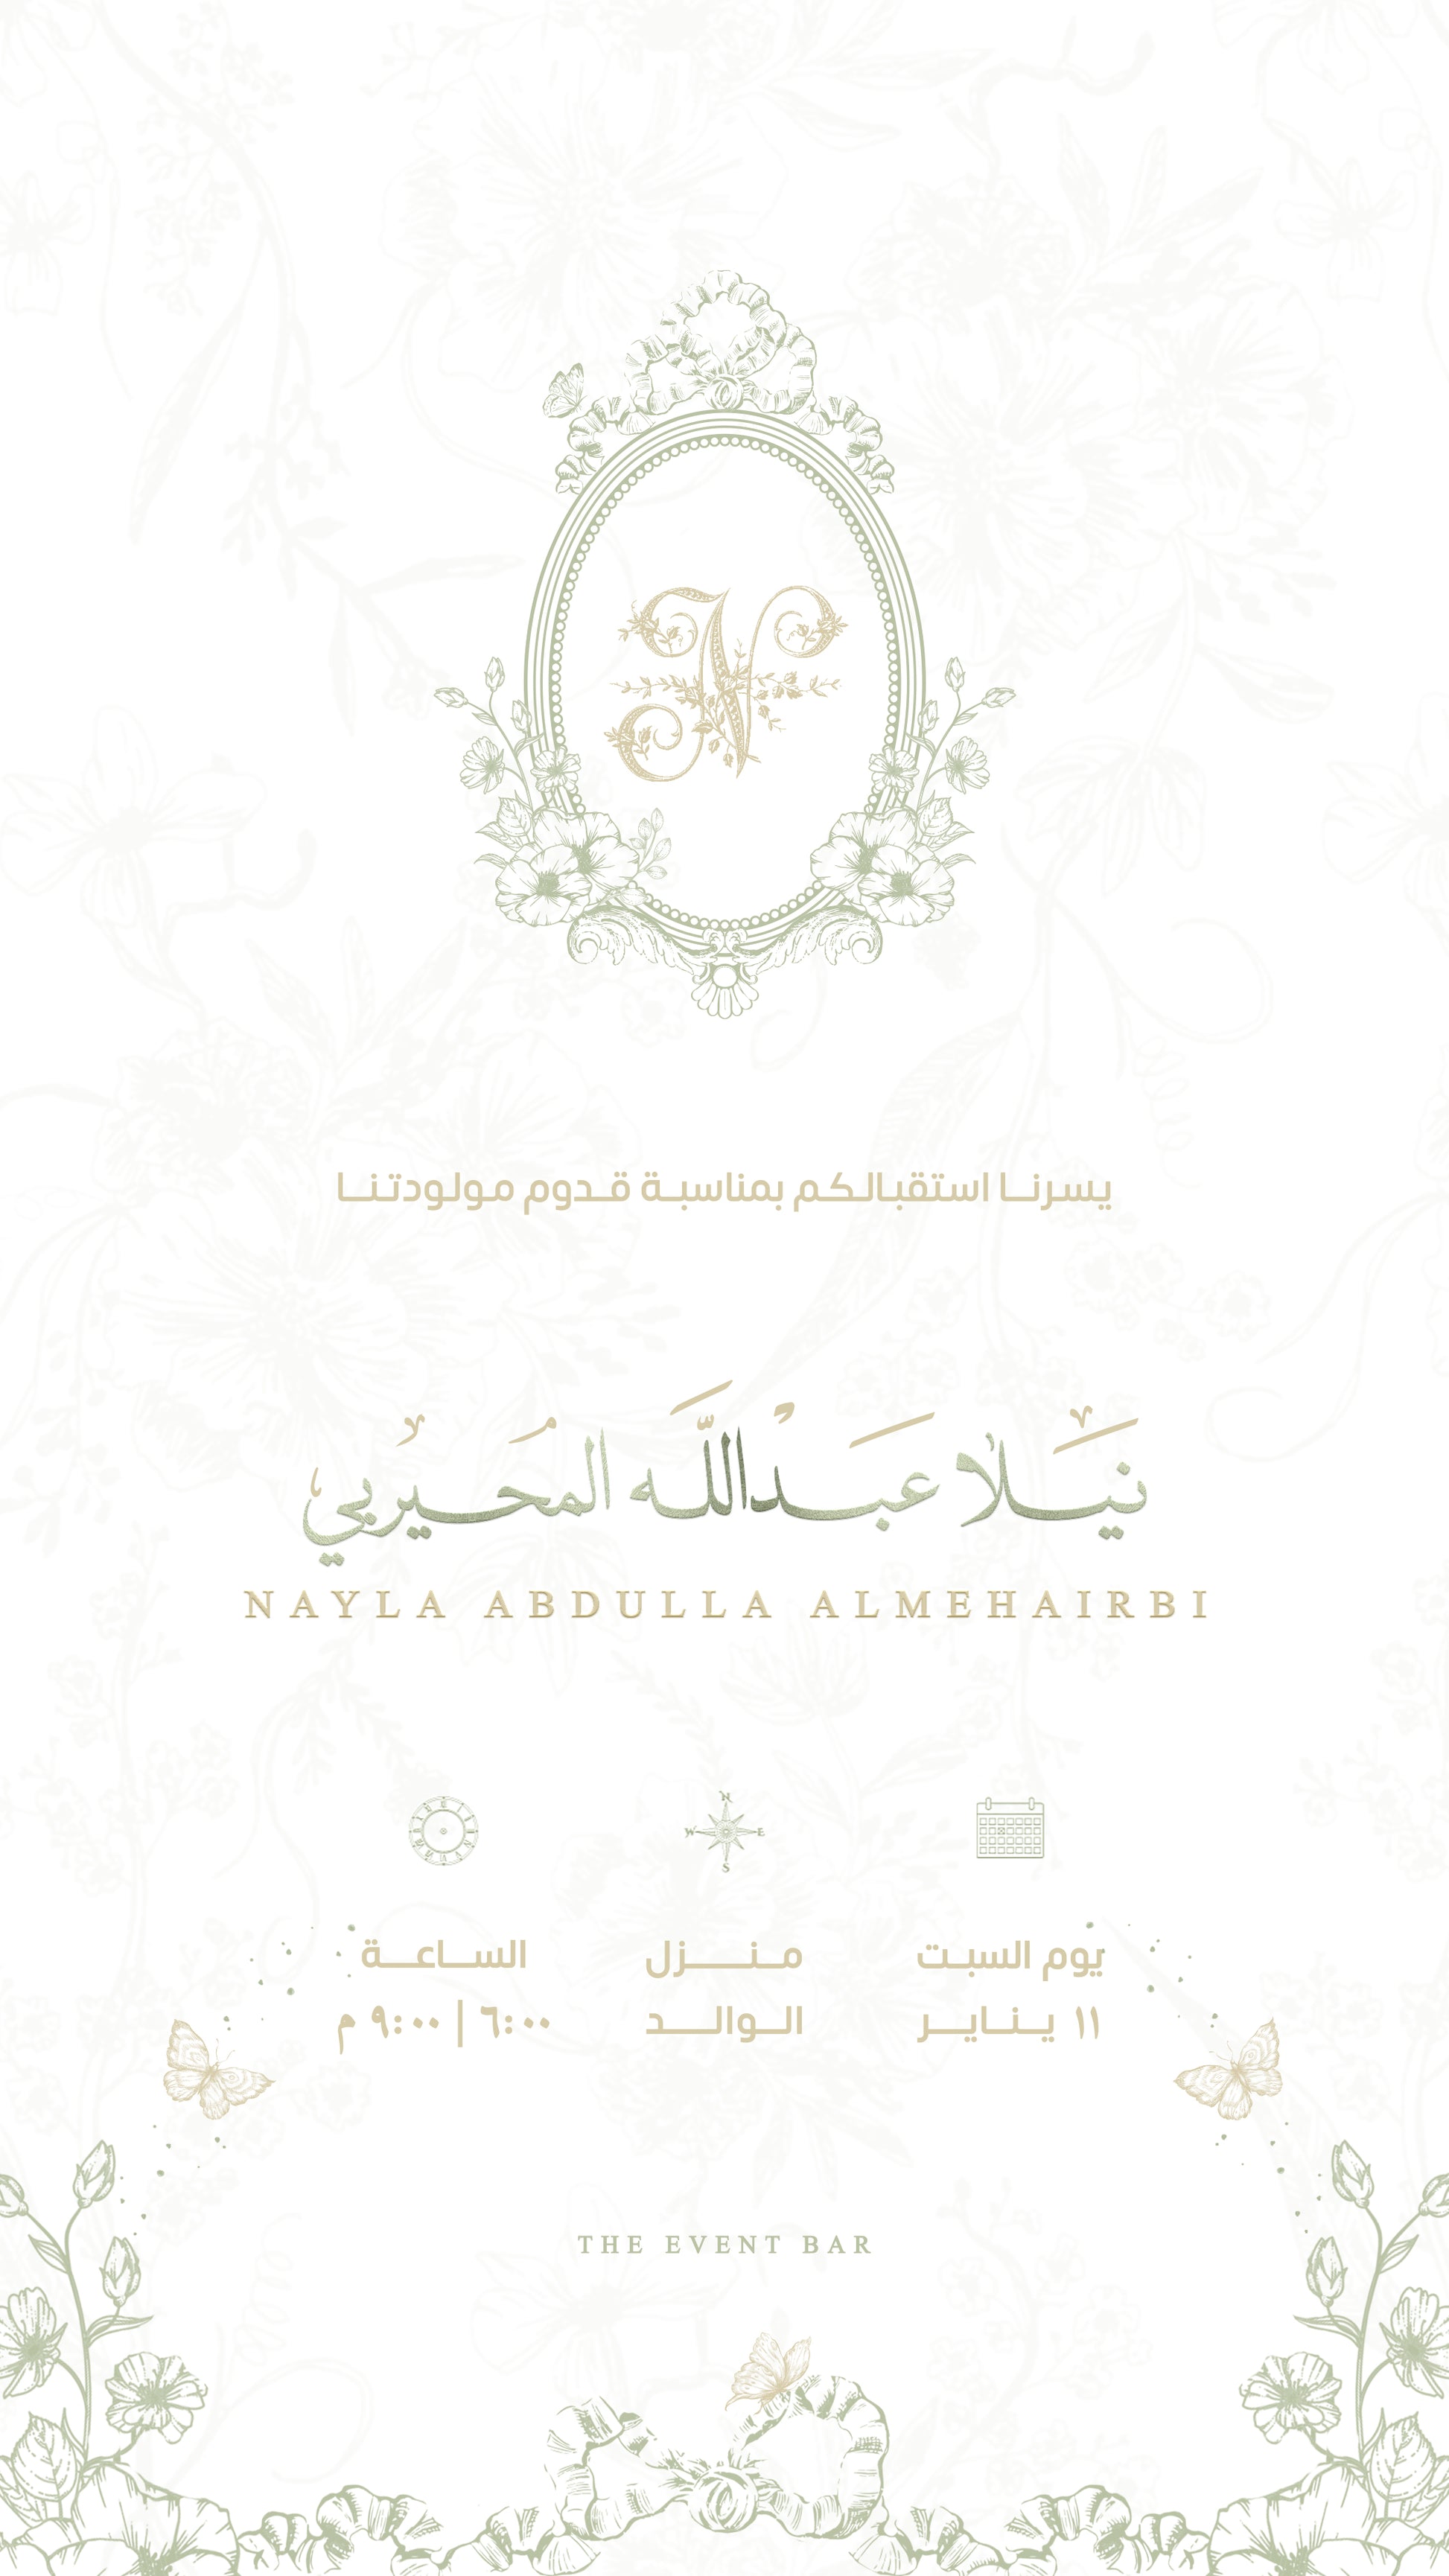 N
يسرنا استقبالكم بمناسبة قدوم مولودتنا
نَيْلا عَبْدُاللَّه المُحَيْربي
NAYLA ABDULLA ALMEHAIRBI
N
W E
S
يوم السبت
١١ يناير
منزل
الوالد
الساعة
٦:٠٠ | ٩:٠٠ م
THE EVENT BAR